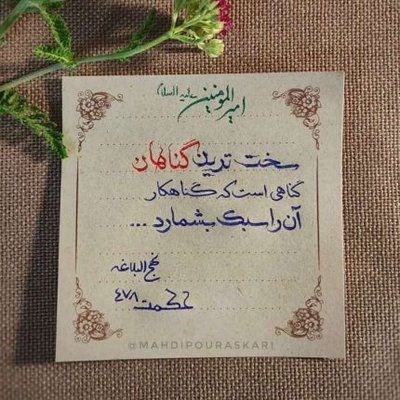 امیرالمومنین علیه السلام
سخت ترین گناهان
گناهی است که گناهکار
آن را سبک بشمارد ...
نهج البلاغه
حکمت ۴۷۸
@MAHDIPOURASKARI